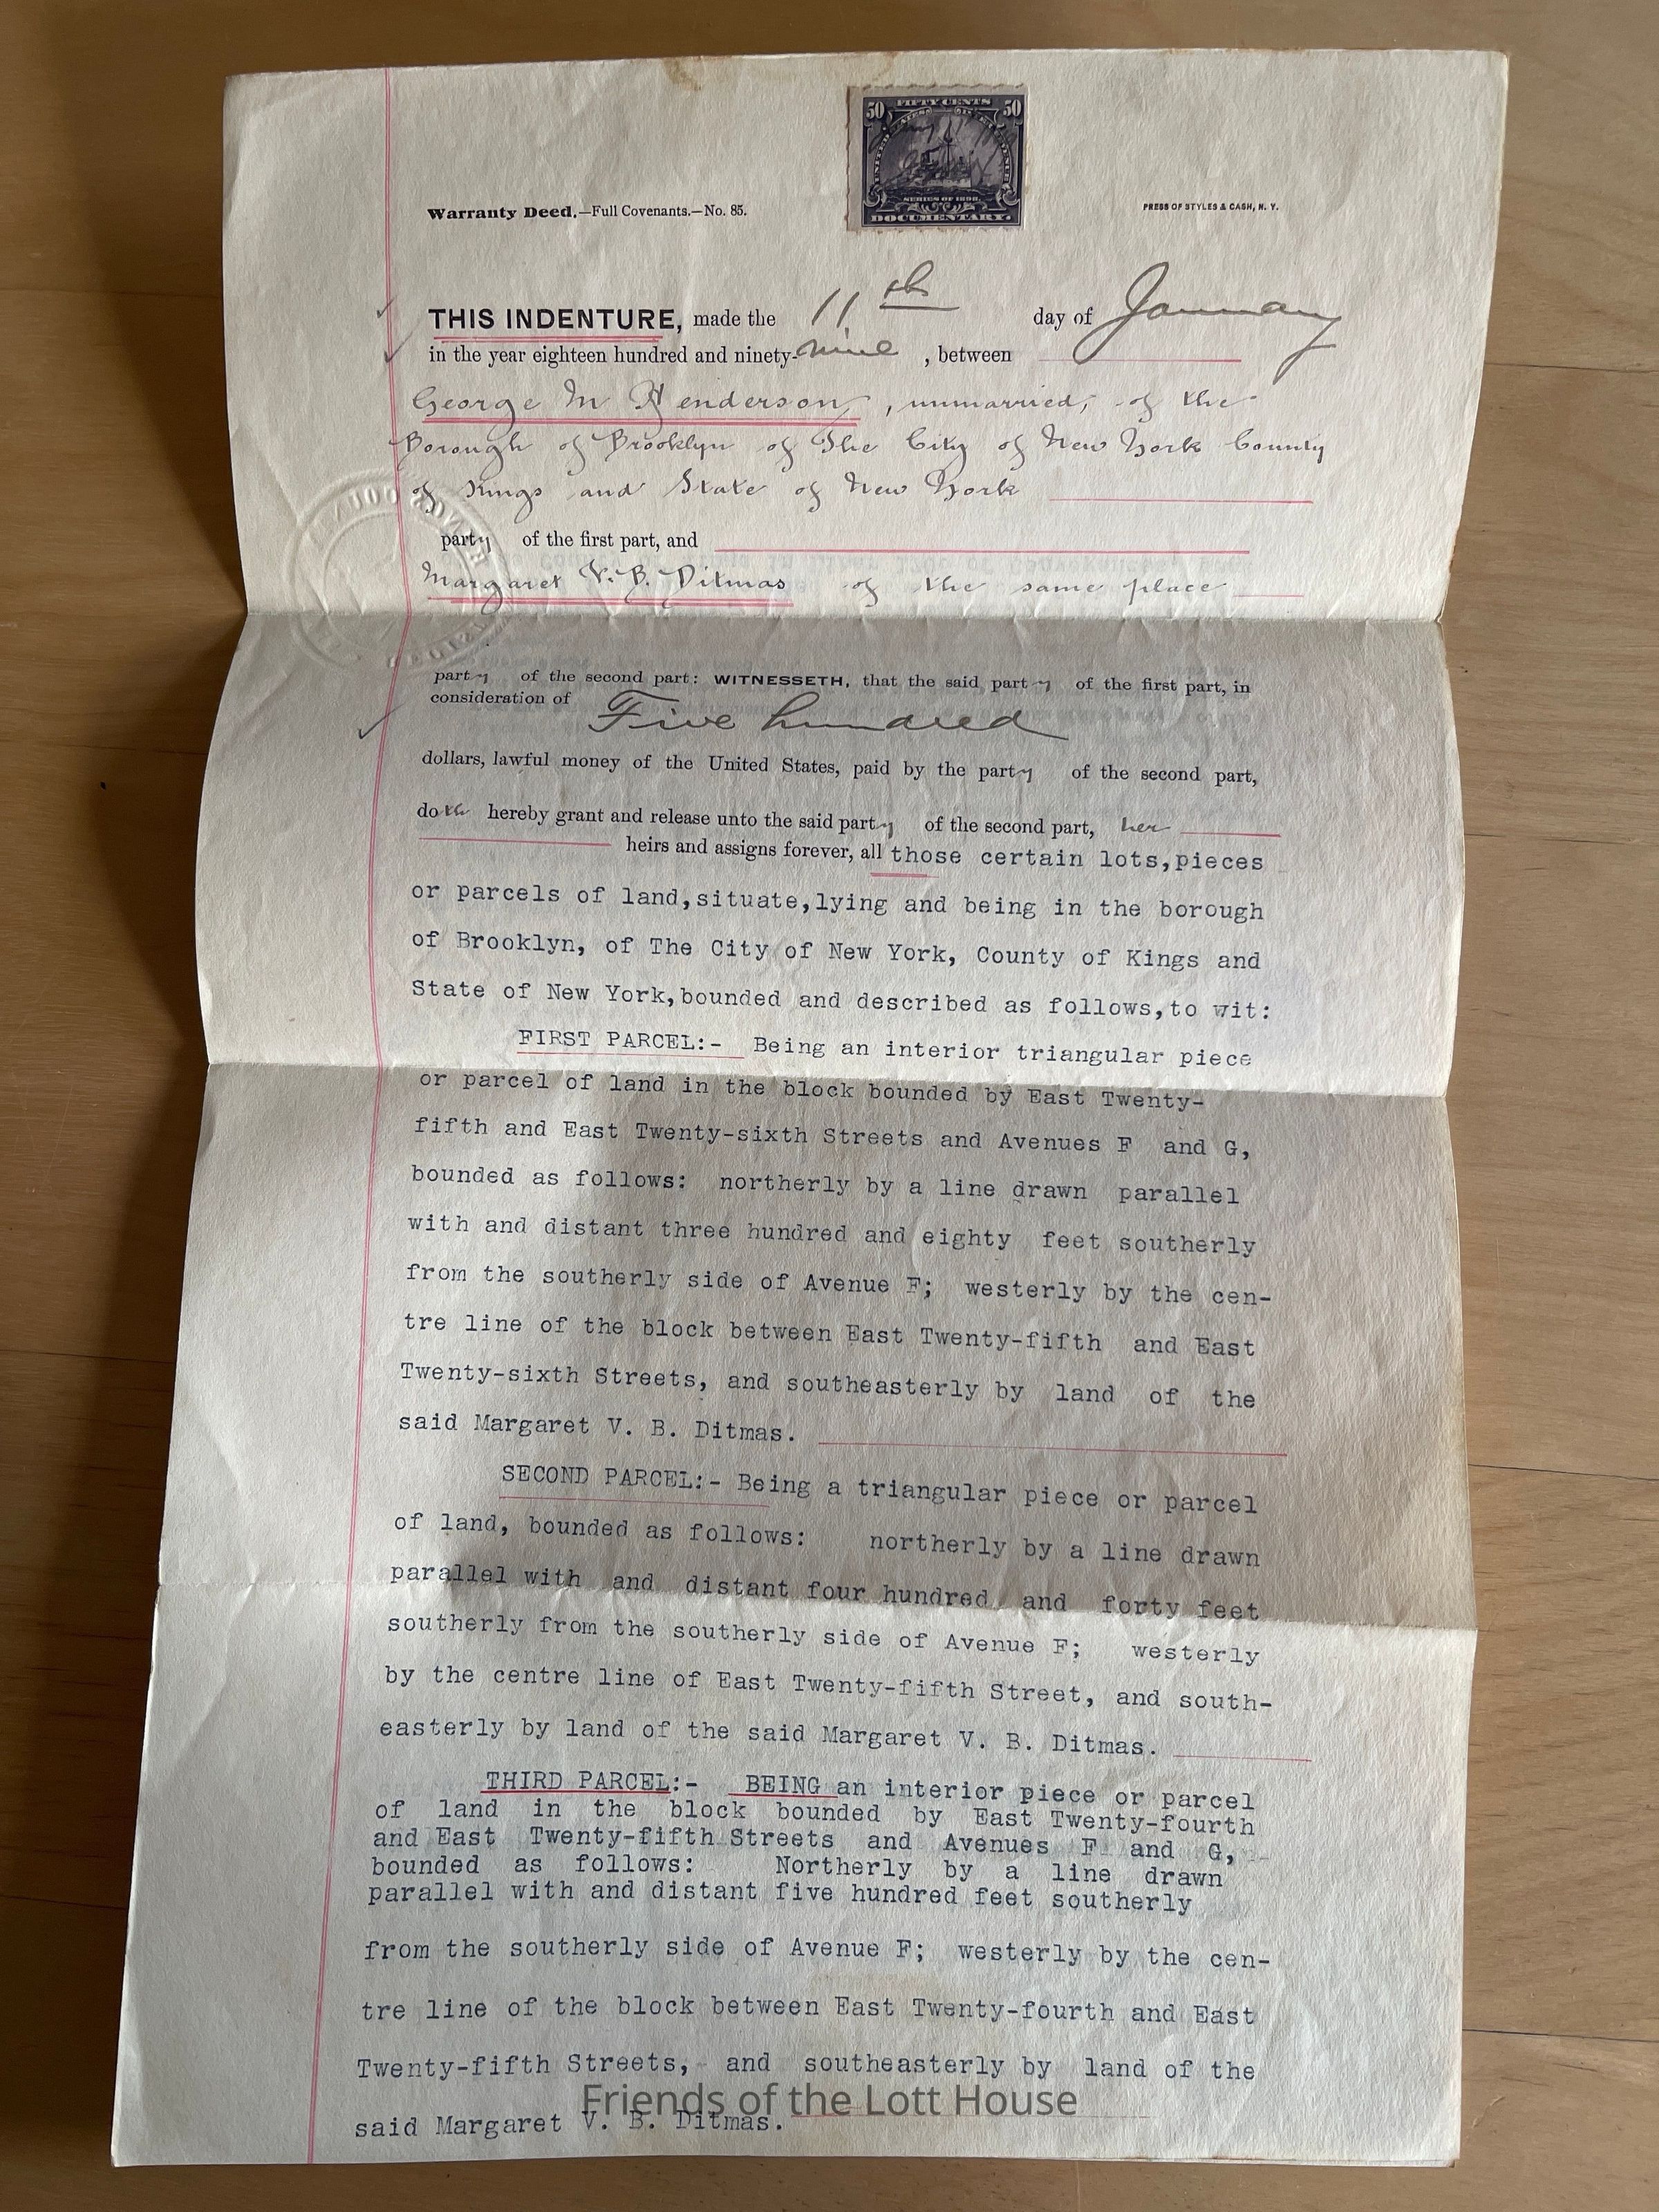 50 FIFTY CENTS 50
SERIES OF 1898
DOCUMENTARY.
Warranty Deed.—Full Covenants.—No. 85.
PRESS OF STYLES & CASH, N. Y.
THIS INDENTURE, made the 11th day of January
in the year eighteen hundred and ninety-nine, between
George M Henderson, unmarried, of the
Borough of Brooklyn of The City of New York County
of Kings and State of New York
party of the first part, and
Margaret V. B. Ditmas of the same place
party of the second part: WITNESSETH, that the said party of the first part, in
consideration of Five hundred
dollars, lawful money of the United States, paid by the party of the second part,
doth hereby grant and release unto the said party of the second part, her
heirs and assigns forever, all those certain lots,pieces
or parcels of land,situate,lying and being in the borough
of Brooklyn, of The City of New York, County of Kings and
State of New York,bounded and described as follows,to wit:
FIRST PARCEL:- Being an interior triangular piece
or parcel of land in the block bounded by East Twenty-
fifth and East Twenty-sixth Streets and Avenues F and G,
bounded as follows: northerly by a line drawn parallel
with and distant three hundred and eighty feet southerly
from the southerly side of Avenue F; westerly by the cen-
tre line of the block between East Twenty-fifth and East
Twenty-sixth Streets, and southeasterly by land of the
said Margaret V. B. Ditmas.
SECOND PARCEL:- Being a triangular piece or parcel
of land, bounded as follows: northerly by a line drawn
parallel with and distant four hundred and forty feet
southerly from the southerly side of Avenue F; westerly
by the centre line of East Twenty-fifth Street, and south-
easterly by land of the said Margaret V. B. Ditmas.
THIRD PARCEL:- BEING an interior piece or parcel
of land in the block bounded by East Twenty-fourth
and East Twenty-fifth Streets and Avenues F and G,
bounded as follows: Northerly by a line drawn
parallel with and distant five hundred feet southerly
from the southerly side of Avenue F; westerly by the cen-
tre line of the block between East Twenty-fourth and East
Twenty-fifth Streets, and southeasterly by land of the
said Margaret V. B. Ditmas.
Friends of the Lott House